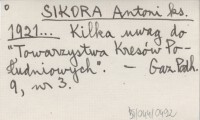 SIKORA Antoni ks.
1921... Kilka uwag do
"Towarzystwa Kresów Po-
łudniowych". — Gaz. Podh.
9, nr 3.